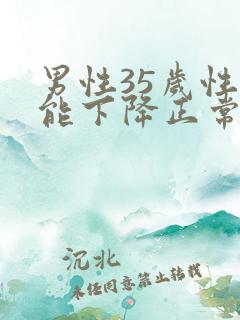 男性35歲性
能下降正常
沉北
未任同意禁止转载